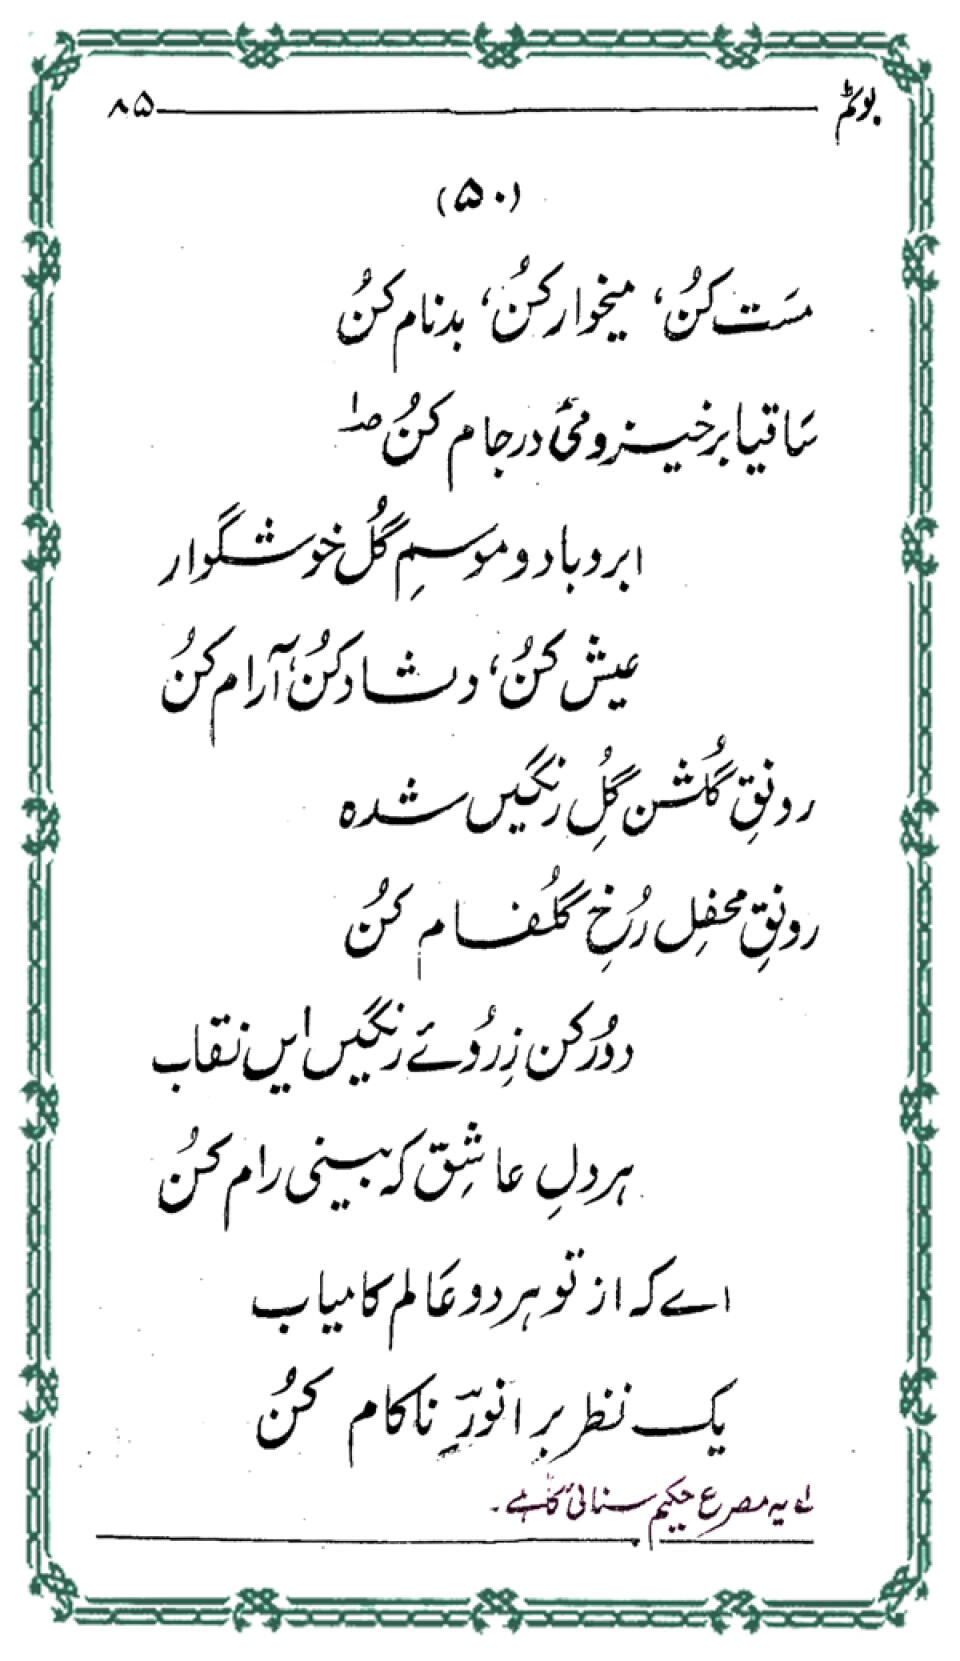 بوٹم ۸۵
(۵۰)
مست کنُ، میخوار کنُ، بدنام کنُ
ساقیا برخیز و مئ در جام کنُ
ابر و باد و موسمِ گُل خوشگوار
عیش کنُ، دلشاد کنُ، آرام کنُ
رونقِ گلُشن گُلِ رنگیں شدہ
رونقِ محفلِ رُخِ گلُفام کنُ
دوُر کن زِ روُئے رنگیں ایں نقاب
ہر دلِ عاشق کہ بینی رام کنُ
اے کہ از تو ہر دو عالم کامیاب
یک نظر بر انورِؔ ناکام کنُ
لہ یہ مصرع حکیم سنائی کا ہے۔